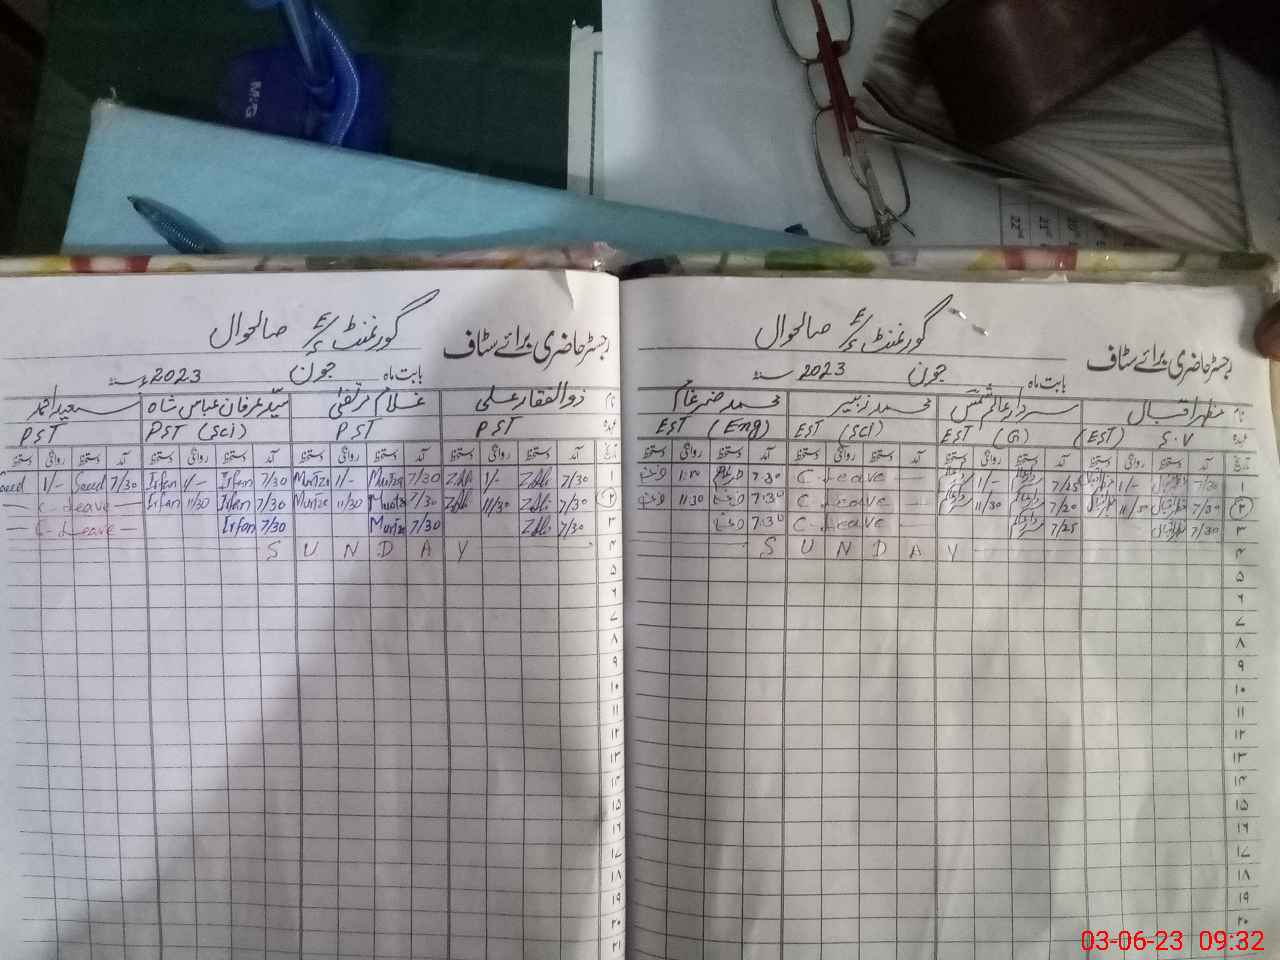 M&G
گورنمنٹ E/S صالحوال
رجسٹر حاضری برائے سٹاف
بابت ماہ جون 2023
نام مظہر اقبال سردار عالم شمس محمد زبیر محمد خضر
S.V (EST) EST (G) EST (Sci) EST (Eng)
تاریخ آمد دستخط روانگی دستخط آمد دستخط روانگی دستخط آمد دستخط روانگی دستخط آمد دستخط روانگی دستخط
۱ 7/30 1/- 7/25 1/- C-Leave — 7:30 1:00
۲ 7/30 11/30 7/20 11/30 C-Leave — 7:30 11:30
۳ 7/30 7/25 C-Leave — 7:30
۴ S U N D A Y
۵
۶
۷
۸
۹
۱۰
۱۱
۱۲
۱۳
۱۴
۱۵
۱۶
۱۷
۱۸
۱۹
۲۰
گورنمنٹ E/S صالحوال
رجسٹر حاضری برائے سٹاف
بابت ماہ جون 2023
نام ذوالفقار علی غلام مرتضیٰ سید عرفان عباس شاہ سعید احمد
PST PST PST (Sci) PST
تاریخ آمد دستخط روانگی دستخط آمد دستخط روانگی دستخط آمد دستخط روانگی دستخط آمد دستخط روانگی دستخط
۱ 7/30 1/- 7/30 Murtza 1/- Murtza 7/30 Irfan 1/- Irfan 7/30 Saeed 1/- Saeed
۲ 7/30 11/30 7/30 Murtza 11/30 Murtza 7/30 Irfan 11/30 Irfan — C-Leave —
۳ 7/30 7/30 Murtza 7/30 Irfan — C-Leave —
۴ S U N D A Y
۵
۶
۷
۸
۹
۱۰
۱۱
۱۲
۱۳
۱۴
۱۵
۱۶
۱۷
۱۸
۱۹
۲۰
۲۱
03-06-23 09:32